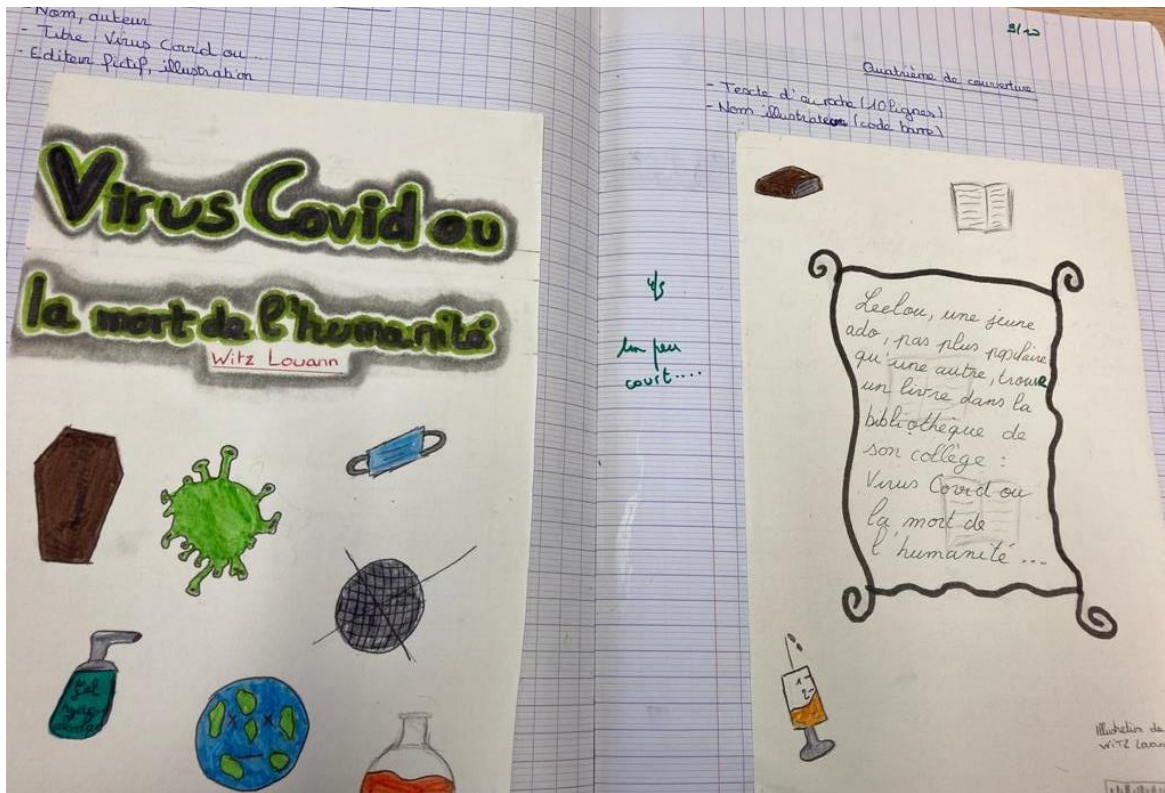 - Nom, auteur
- Titre : Virus Covid ou ...
- Editeur fictif, illustration
Virus Covid ou
la mort de l'humanité
Witz Louann
Gel
hydro
Quatrième de couverture
- Texte d'accroche (10 lignes)
- Nom illustrateur (code barre)
un peu
court....
Leelou, une jeune
ado, pas plus populaire
qu'une autre, trouve
un livre dans la
bibliothèque de
son collège :
Virus Covid ou
la mort de
l'humanité ...
1
2
Illustration de
WITZ Louann